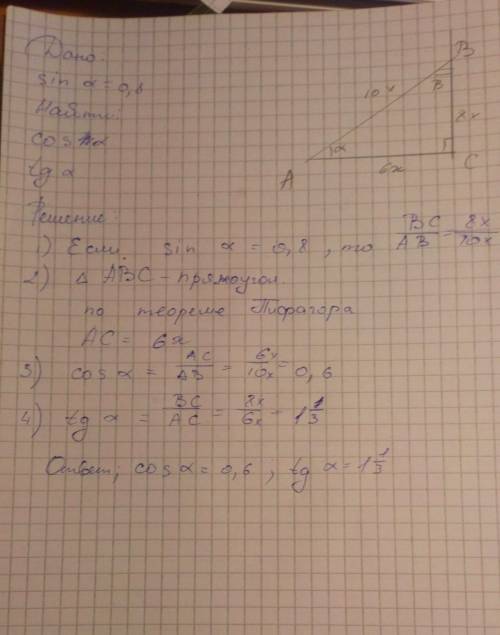 Дано:
sin α = 0,8
Найти:
cos α
tg α
B
B
10x
8x
α
A
6x
C
Решение:
1) Если sin α = 0,8, то BC/AB = 8x/10x
2) Δ ABC - прямоугол.
по теореме Пифагора
AC = 6x
3) cos α = AC/AB = 6x/10x = 0,6
4) tg α = BC/AC = 8x/6x = 1 1/3
Ответ; cos α = 0,6 ; tg α = 1 1/3